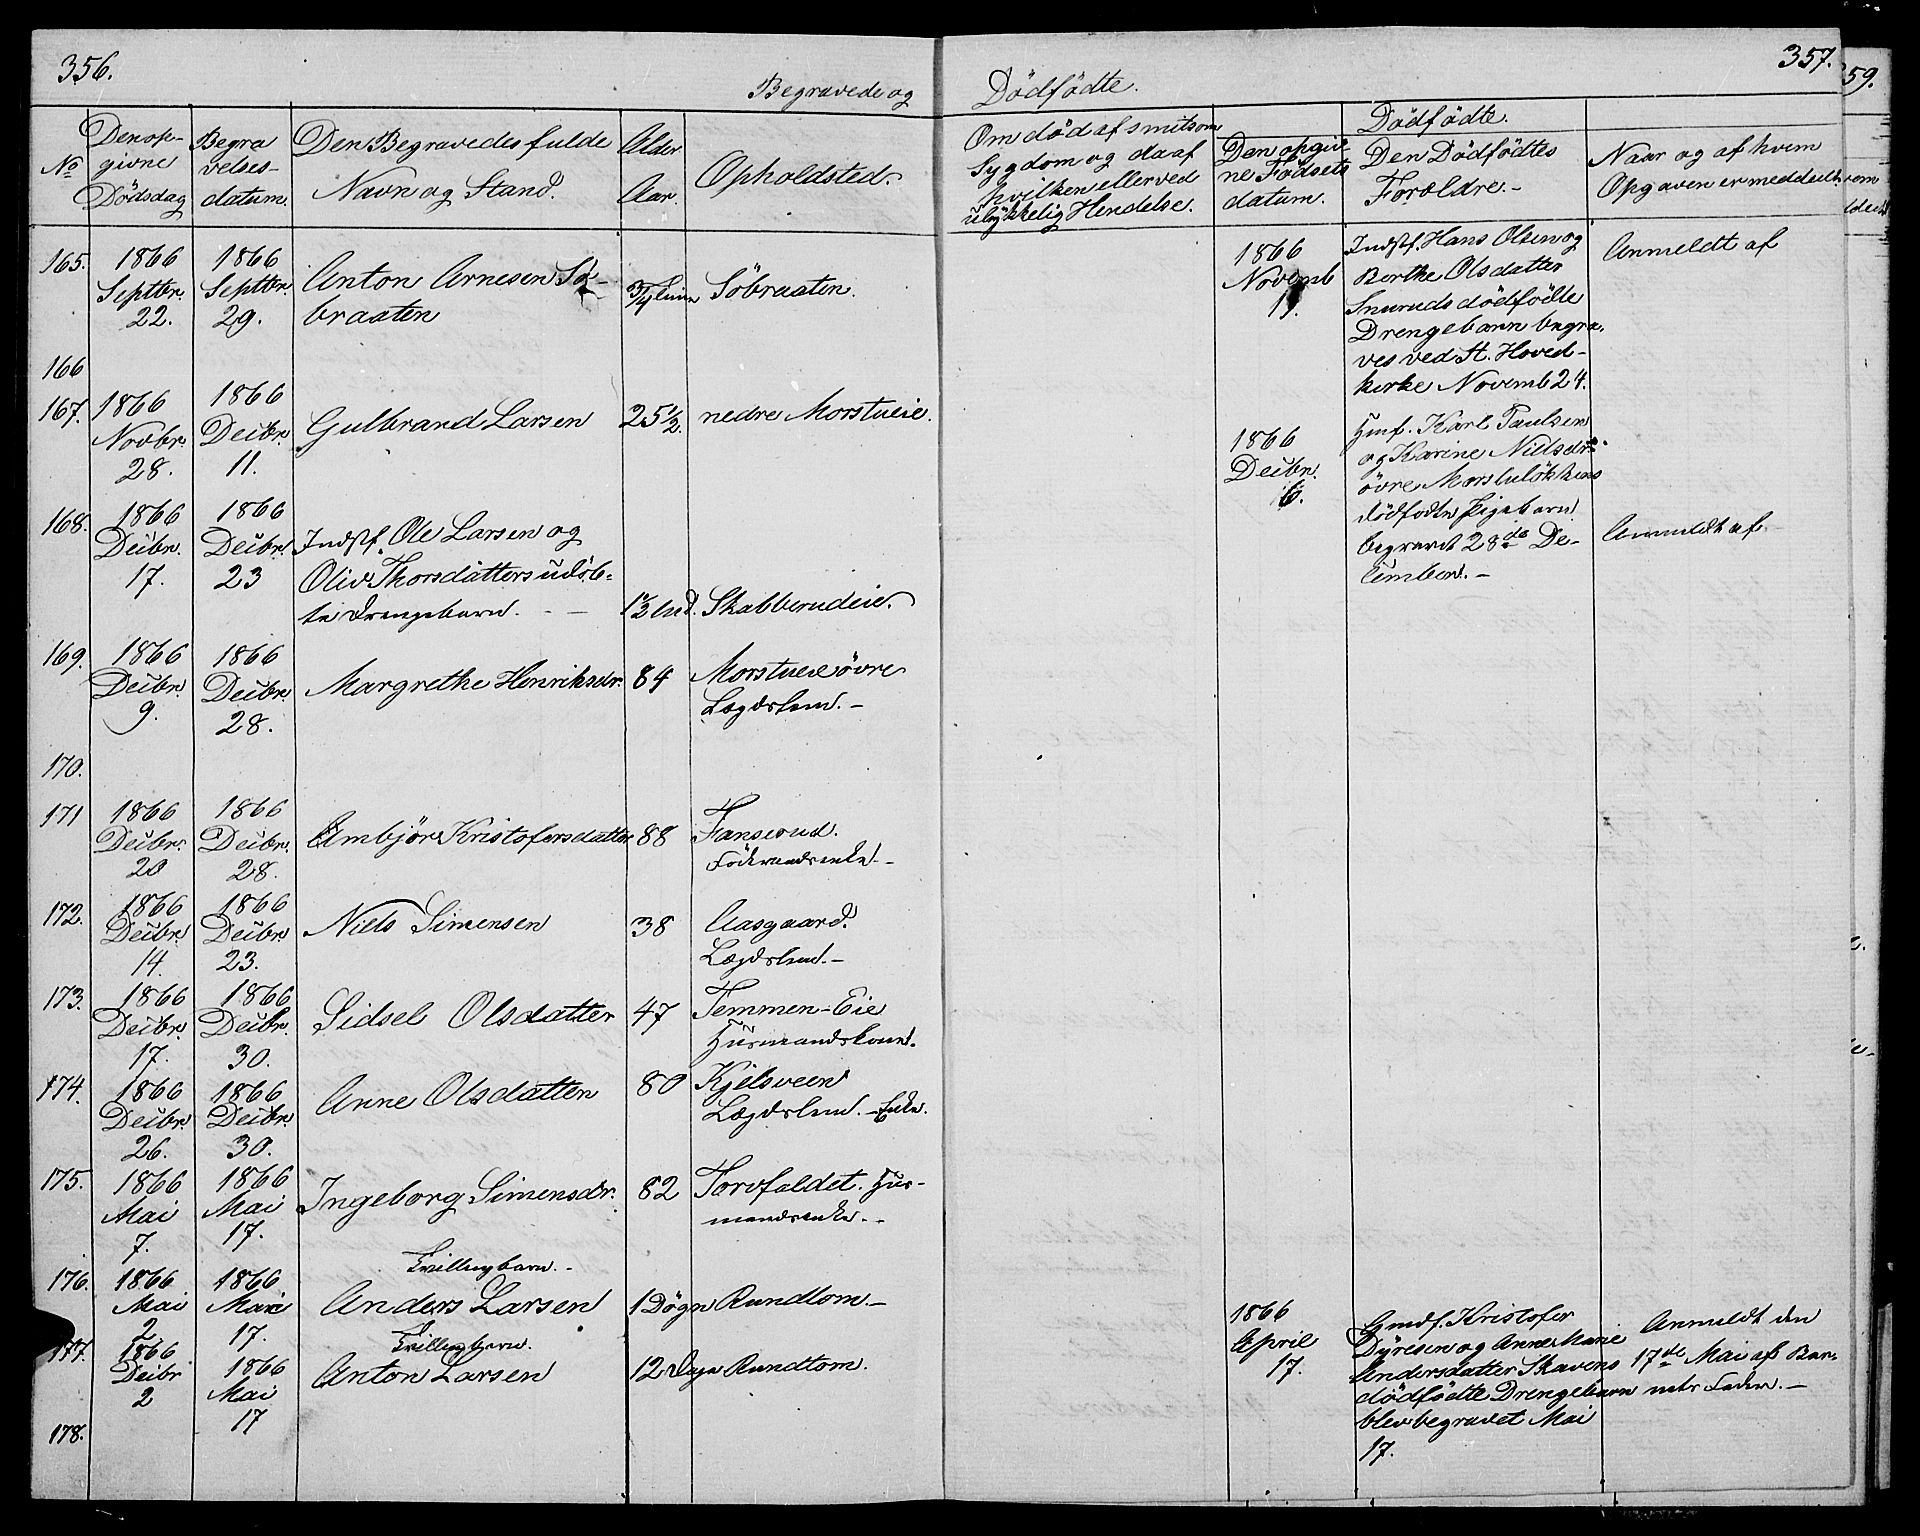 356.
Begravede og
No
Den op-
givne
Dödsdag
Begra
velses-
datum.
Den Begravedes fulde
Navn og Stand.
Alder
Aar.
Opholdsted.
165.
1866
Septbr.
22.
1866
Septbr.
29.
Anton Arnesen Sö-
braaten
3/4
Söbraaten.
166
167.
1866
Novbr.
28.
1866
Decbr.
11.
Gulbrand Larsen
25 1/2.
nedre Morstueie.
168.
1866
Decbr.
17.
1866
Decbr.
23
Indst. Ole Larsen og
Oliv Thorsdatters udöb-
te Drengebarn. - -
1 1/2
Skabberudeie.
169.
1866
Decbr.
9.
1866
Decbr.
28.
Margrethe Henriksdr.
84
Morstueie övre
Lægdslem. -
170.
171
1866
Decbr.
20
1866
Decbr.
28.
Ambjör Kristofersdatter
88
Fanserud.
Föderaadsenke. -
172.
1866
Decbr.
14.
1866
Decbr.
23.
Niels Simensen
38
Aasgaard.
Lægdslem. -
173.
1866
Decbr.
17.
1866
Decbr.
30.
Sidsel Olsdatter
47
Temmen-Eie
Husmandskone.
174.
1866
Decbr.
26.
1866
Decbr.
30.
Anne Olsdatter
80
Kjelsveen
Lægdslem. - Enke.
175.
1866
Mai
7.
1866
Mai
17.
Ingeborg Simensdr.
82
Torvfaldet. Hus-
mandsenke. -
176.
1866
Mai
2
1866
Mai
17.
Tvillingbarn. -
Anders Larsen
1 Dögn
Rundtom. -
177.
1866
Decbr
2
1866
Mai
17
Tvillingbarn.
Anton Larsen
12 Dage
Rundtom.
178.
357.
Dödfödte.
Om död af smitsom
Sygdom og da af
hvilken eller ved
ulykkelig Hendelse.
Dödfödte.
Den opgiv
ne Födsels
datum.
Den Dödfödtes
Forældre. -
Naar og af hvem
Opgaven er meddeelt.
1866
Novemb
Indst. Hans Olsen og
Berthe Olsdatter
Snuruds dödfödte
Drengebarn begra-
ves ved St. Hoved-
kirke Novemb 24.
Anmeldt af
1866
Decbr.
6.
Hmf. Karl Paulsen
og Karine Nielsdr.
övre Morstulökkens
dödfödte Pigebarn
begravet 28de De-
cember. -
Anmeldt af -
1866
April
17.
Gmdf. Kristofer
Dyresen og Anne Marie
Andersdatter Skavens
dödfödte Drengebarn
blev begravet Mai
17.
Anmeldt den
17de Mai af Bar-
nets Fader. -
59.